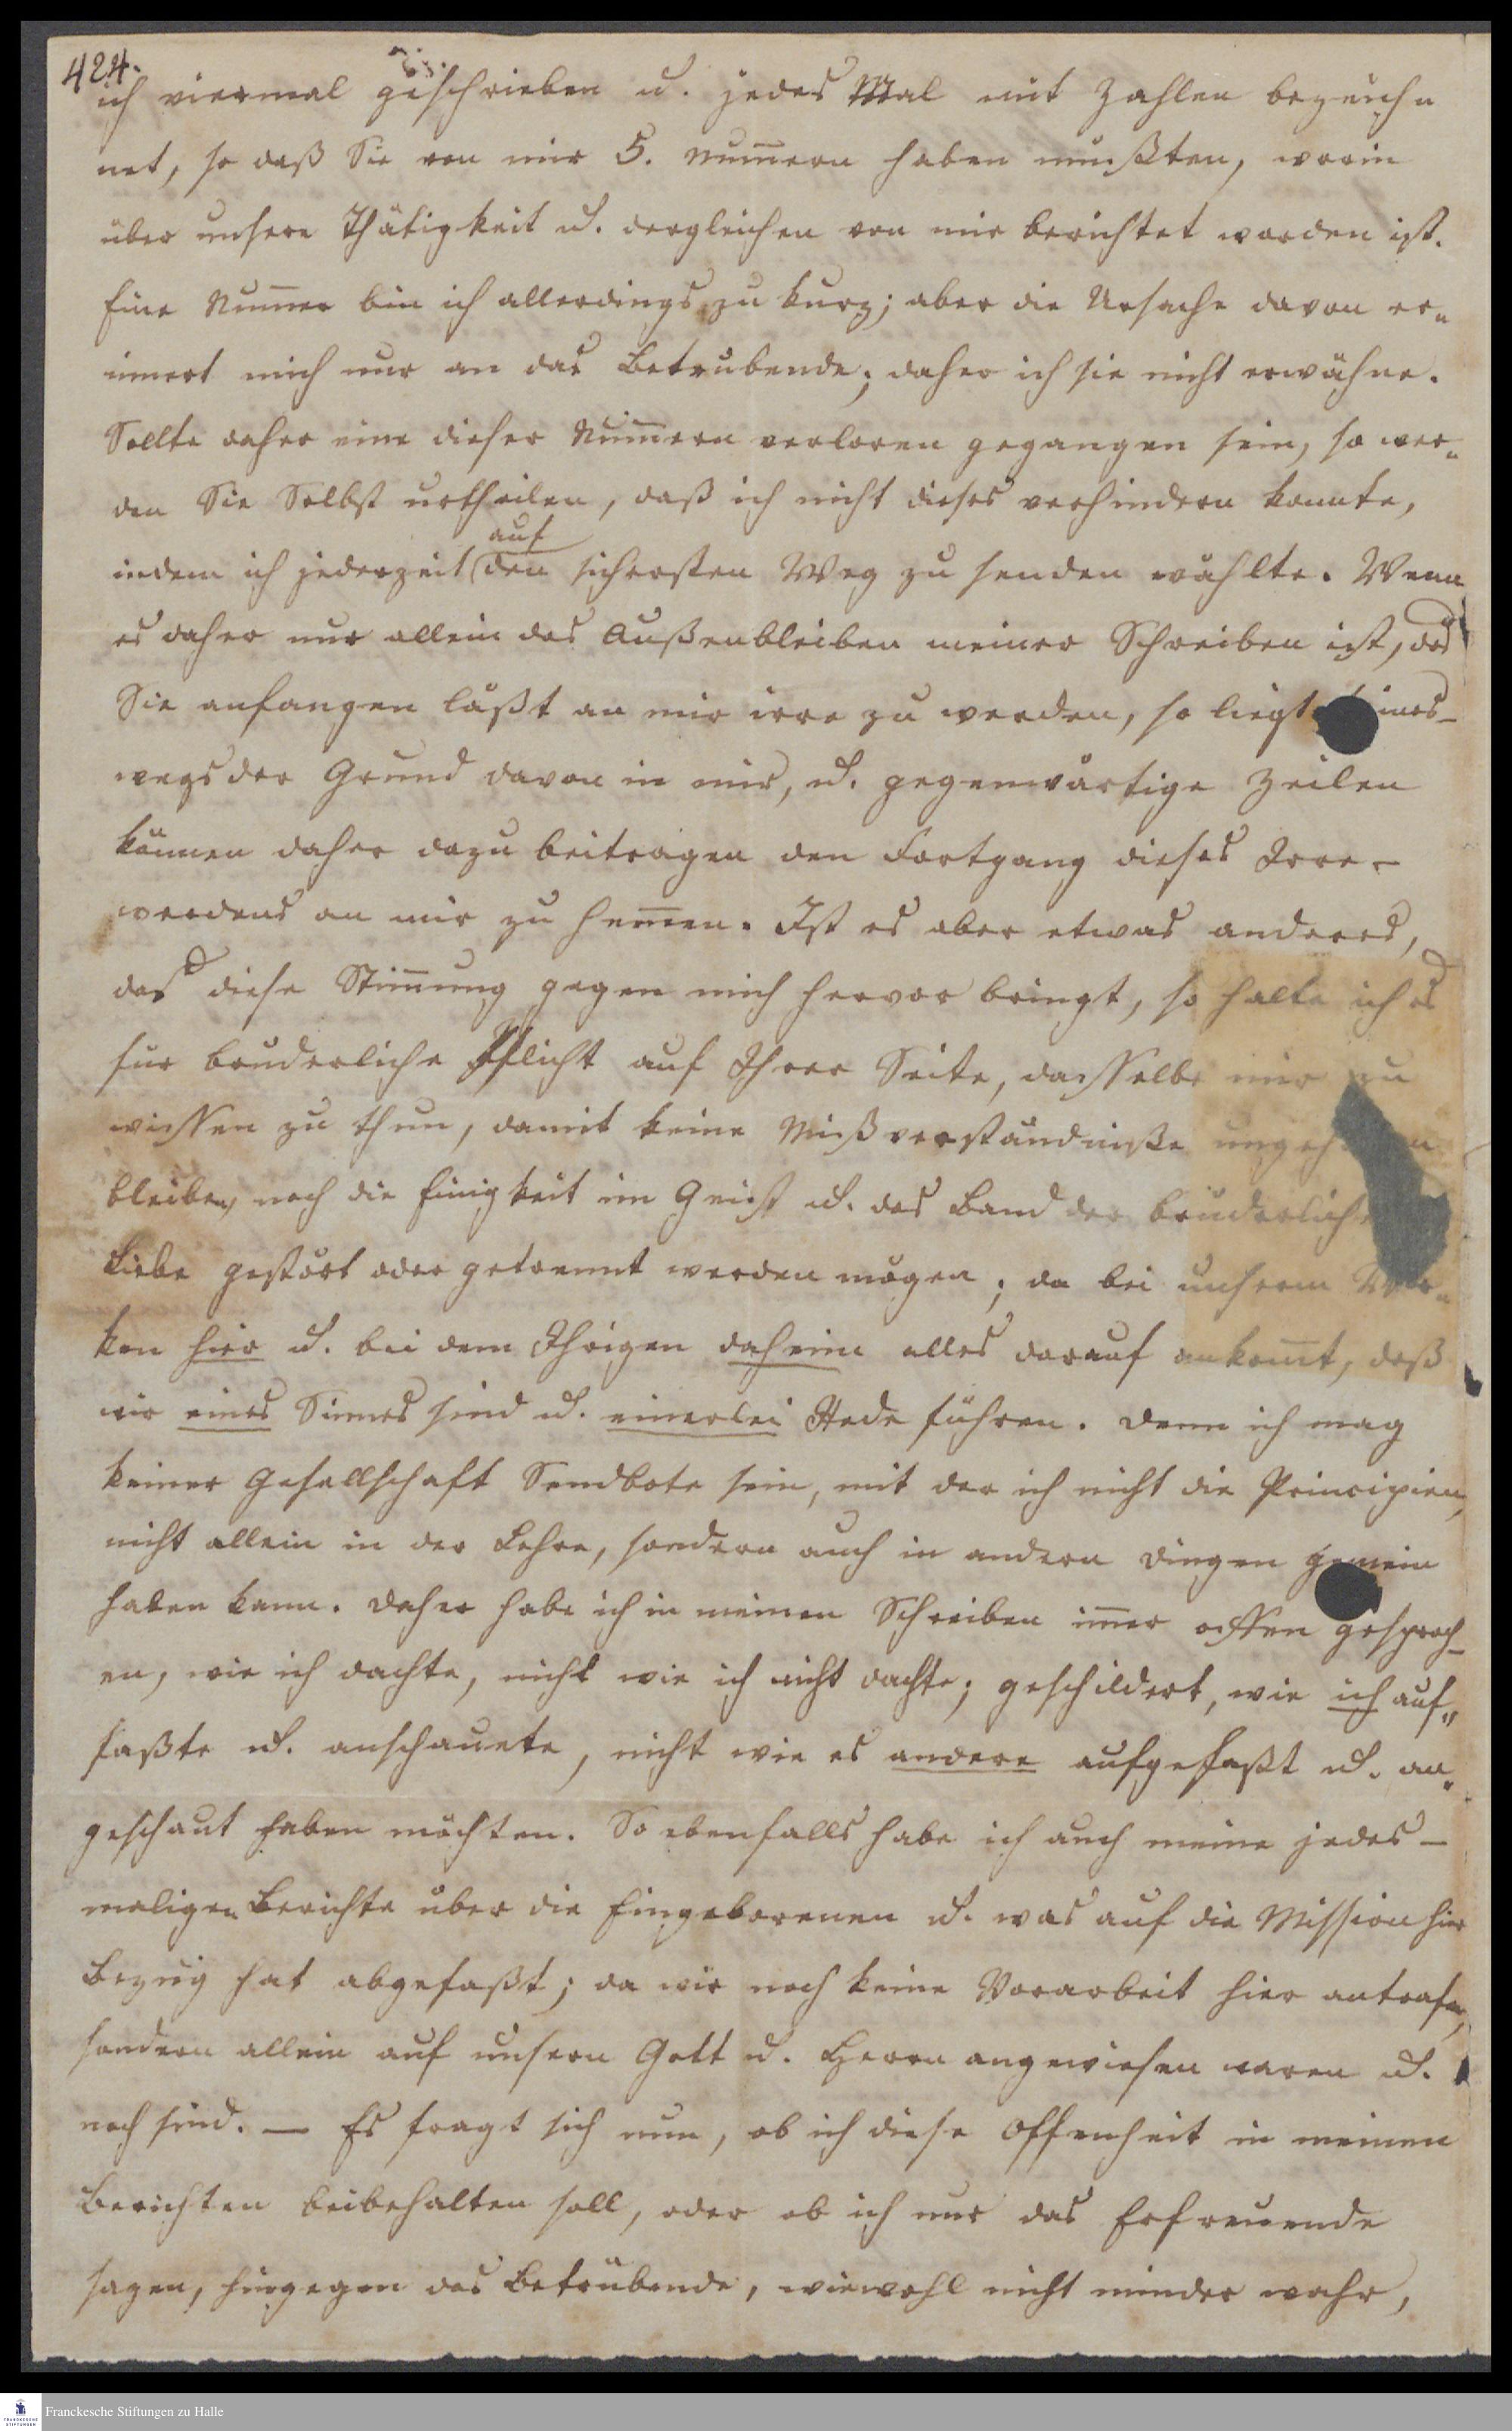 424.
ich viermal geschrieben u. jedes Mal mit Zahlen bezeich=
net, so daß Sie von mir 5. Num̄ern haben mußten, worin
über unsere Thätigkeit u. dergleichen von mir berichtet worden ist.
Eine Num̄er bin ich allerdings zu kurz; aber die Ursache davon er=
innert mich nur an das Betrubende; daher ich sie nicht erwähne.
Sollte daher eine dieser Num̄ern verloren gegangen sein, so wer=
den Sie Selbst urtheilen, daß ich nicht dieses verhindern konnte,
auf
indem ich jederzeit den sichersten Weg zu senden wählte. Wenn
es daher nur allein das Außenbleiben meiner Schreiben ist, das
Sie anfangen läßt an mir irre zu werden, so liegt ines-
wegs der Grund davon in mir, u. gegenwärtige Zeilen
können daher dazu beitragen den Fortgang dieses Irre-
werdens an mir zu hem̄en. Ist es aber etwas anderes,
das diese Stim̄ung gegen mich hervor bringt, so halte ich es
für bruderliche Pflicht auf Ihrer Seite, dasselbe mir zu
wissen zu thun, damit keine Mißverständniße
bleiben, noch die Einigkeit im Geist u. das Band der brüderliche
Liebe gestört oder getrennt werden mögen; da bei unserm Wir=
ken hier u. bei dem Ihrigen daheim alles darauf ankom̄t, daß
wir eines Sinnes sind u. einerlei Rede führen. Denn ich mag
keiner Gesellschaft Sendbote sein, mit der ich nicht die Principien,
nicht allein in der Lehre, sondern auch in andern Dingen gemein
haben kann. Daher habe ich in meinen Schreiben im̄er offen gesproch-
en, wie ich dachte, nicht wie ich nicht dachte; geschildert, wie ich auf=
faßte u. anschauete, nicht wie es andere aufgefaßt u. an=
geschaut haben möchten. So ebenfalls habe ich auch meine jedes-
maligen Berichte über die Eingeborenen u. was auf die Mission hier
Bezug hat abgefaßt; da wir noch keine Vorarbeit hier antrafen,
sondern allein auf unsern Gott u. Herrn angewiesen waren u.
noch sind. — Es fragt sich nun, ob ich diese Offenheit in meinen
Berichten beibehalten soll, oder ob ich nur das Erfreuende
sagen, hingegen das Betrübende, wiewohl nicht minder wahr,
Franckesche Stiftungen zu Halle